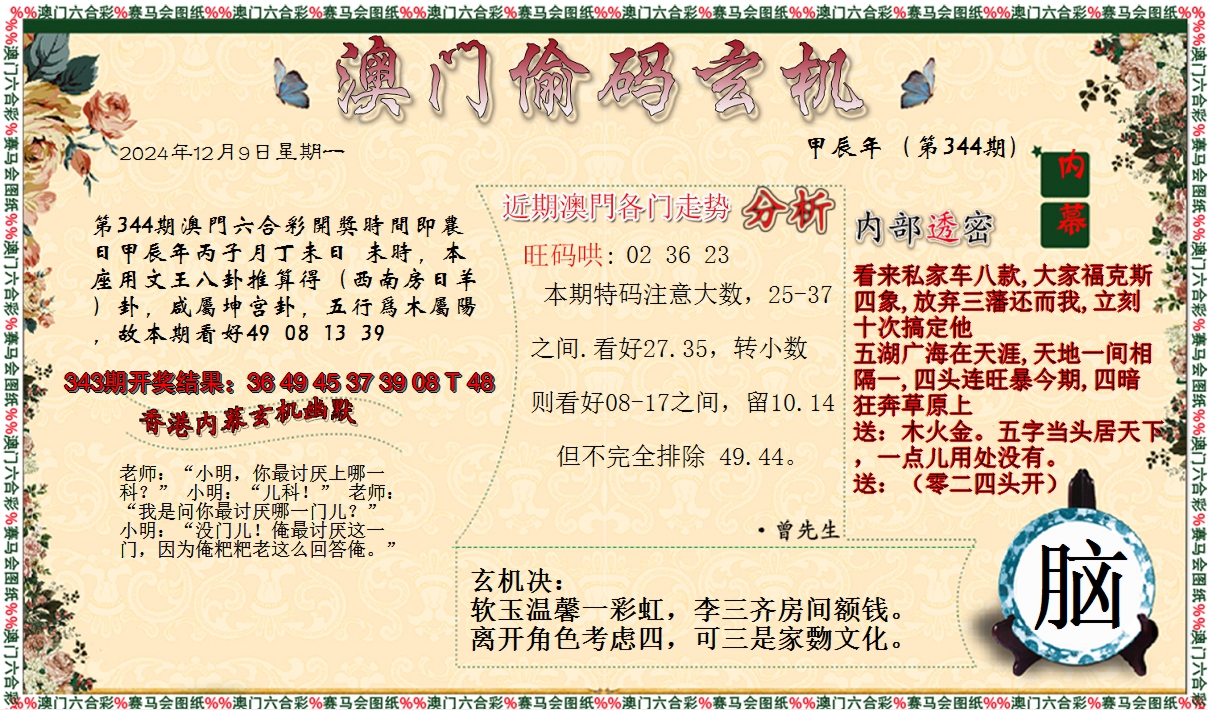 %%澳门六合彩%赛马会图纸%%澳门六合彩%赛马会图纸%%澳门六合彩%赛马会图纸%%澳门六合彩%赛马会图纸%%澳门六合彩%赛马会图纸%%澳门六合彩%赛马会图纸%%
澳门偷码玄机
2024年12月9日星期一
甲辰年（第344期）
第344期澳門六合彩開獎時間即農
日甲辰年丙子月丁未日 未時，本
座用文王八卦推算得（西南房日羊
）卦，咸屬坤宫卦，五行爲木屬陽
，故本期看好49 08 13 39
343期开奖结果：36 49 45 37 39 08 T 48
香港内幕玄机幽默
老师：“小明，你最讨厌上哪一
科？” 小明：“儿科！” 老师：
“我是问你最讨厌哪一门儿？”
小明：“没门儿！俺最讨厌这一
门，因为俺粑粑老这么回答俺。”
近期澳門各门走势 分析
旺码哄: 02 36 23
本期特码注意大数，25-37
之间.看好27.35，转小数
则看好08-17之间，留10.14
但不完全排除 49.44。
·曾先生
内部透密
内幕
看来私家车八款,大家福克斯
四象,放弃三藩还而我,立刻
十次搞定他
五湖广海在天涯,天地一间相
隔一,四头连旺暴今期,四暗
狂奔草原上
送：木火金。五字当头居天下
，一点儿用处没有。
送：（零二四头开）
玄机决：
软玉温馨一彩虹，李三齐房间额钱。
离开角色考虑四，可三是家覅文化。
脑
%%澳门六合彩%赛马会图纸%%澳门六合彩%赛马会图纸%%澳门六合彩%赛马会图纸%%澳门六合彩%赛马会图纸%%澳门六合彩%赛马会图纸%%澳门六合彩%赛马会图纸%%